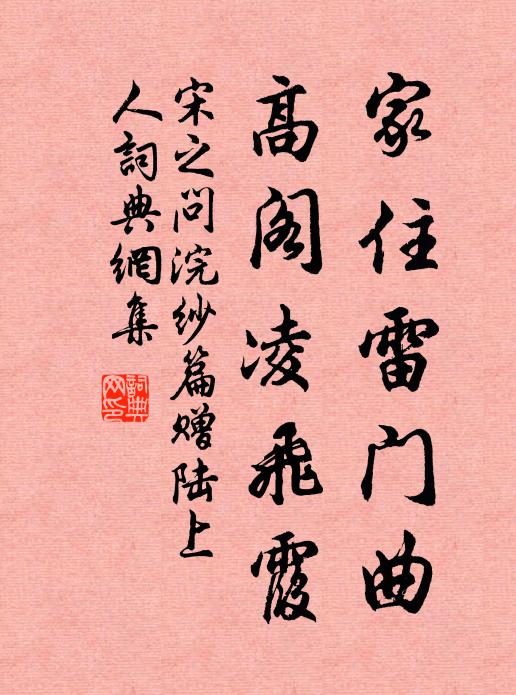 家住雷门曲
高阁凌飞霞
宋之问浣纱篇赠陆上
人詞典網集
詞典网印